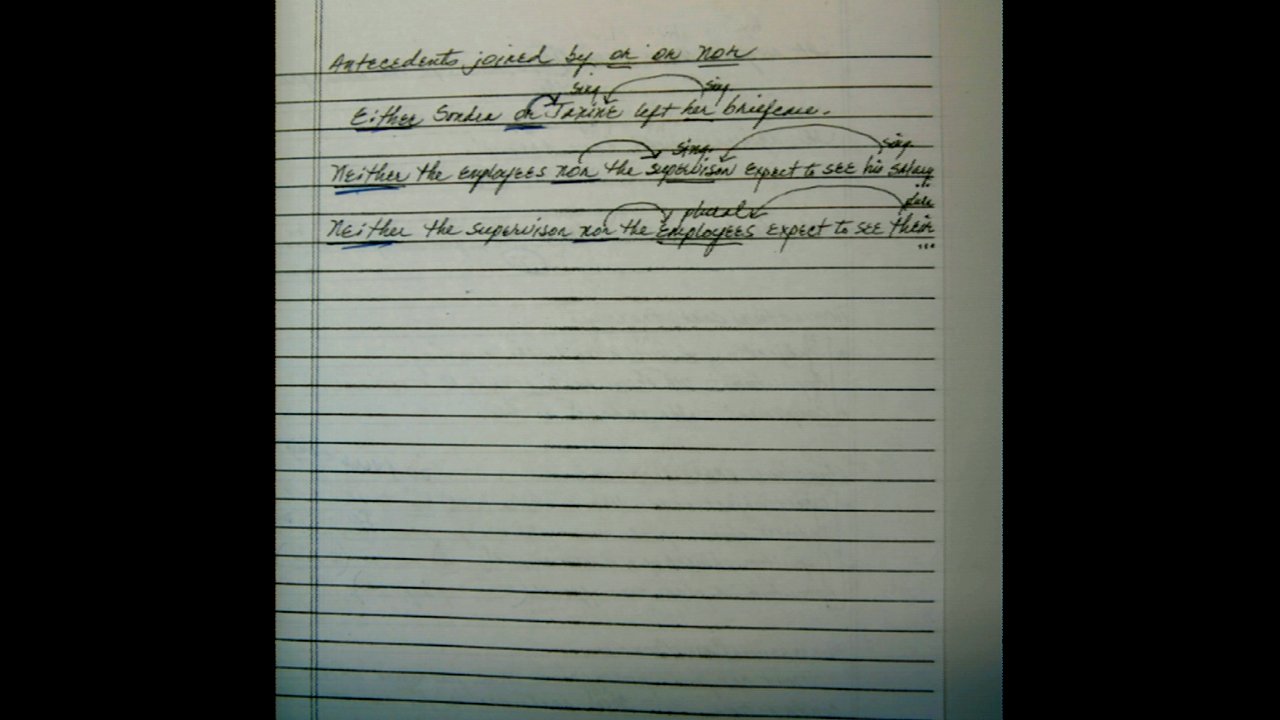 Antecedents joined by or or nor
sing. sing.
Either Sondra or Janine left her briefcase.
sing. sing.
Neither the employees nor the supervisor expect to see his salary
...
plural plu
Neither the supervisor nor the employees expect to see their
...